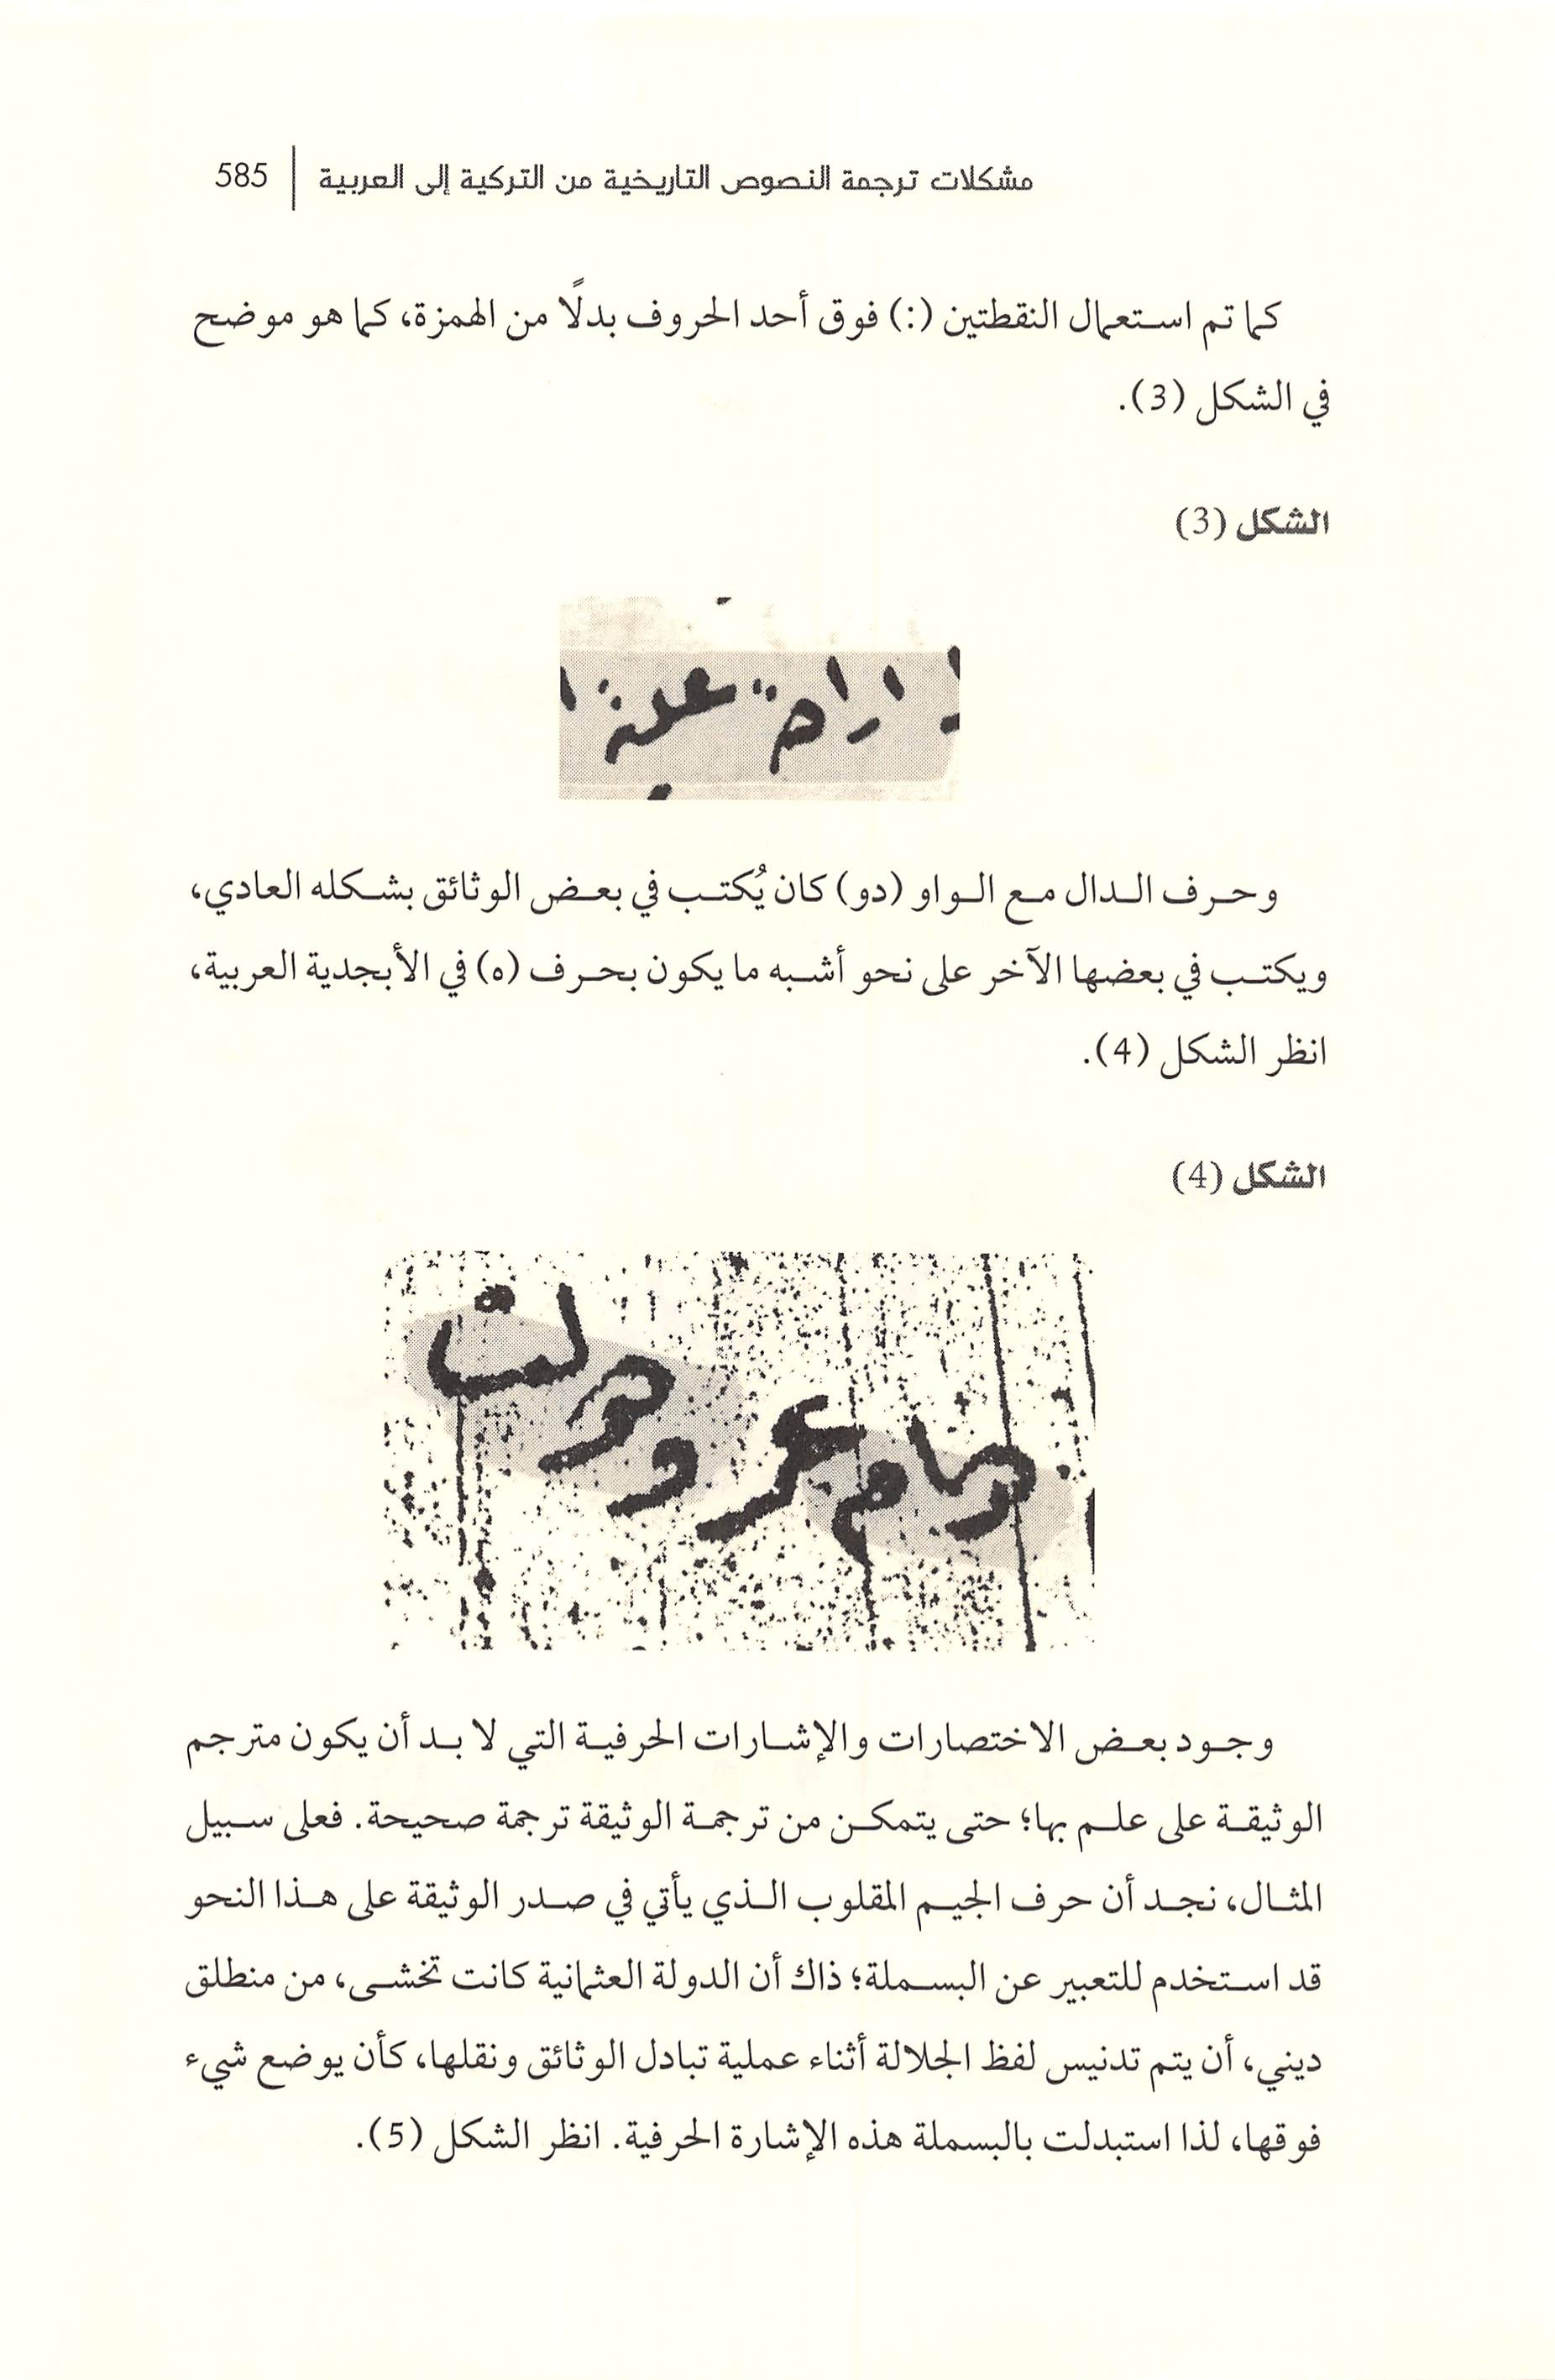 مشكلات ترجمة النصوص التاريخية من التركية إلى العربية | 585
كما تم استعمال النقطتين (:) فوق أحد الحروف بدلًا من الهمزة، كما هو موضح
في الشكل (3).
الشكل (3)
وحرف الدال مع الواو (دو) كان يُكتب في بعض الوثائق بشكله العادي،
ويكتب في بعضها الآخر على نحو أشبه ما يكون بحرف (ه) في الأبجدية العربية،
انظر الشكل (4).
الشكل (4)
وجود بعض الاختصارات والإشارات الحرفية التي لا بد أن يكون مترجم
الوثيقة على علم بها؛ حتى يتمكن من ترجمة الوثيقة ترجمة صحيحة. فعلى سبيل
المثال، نجد أن حرف الجيم المقلوب الذي يأتي في صدر الوثيقة على هذا النحو
قد استخدم للتعبير عن البسملة؛ ذاك أن الدولة العثمانية كانت تخشى، من منطلق
ديني، أن يتم تدنيس لفظ الجلالة أثناء عملية تبادل الوثائق ونقلها، كأن يوضع شيء
فوقها، لذا استبدلت بالبسملة هذه الإشارة الحرفية. انظر الشكل (5).